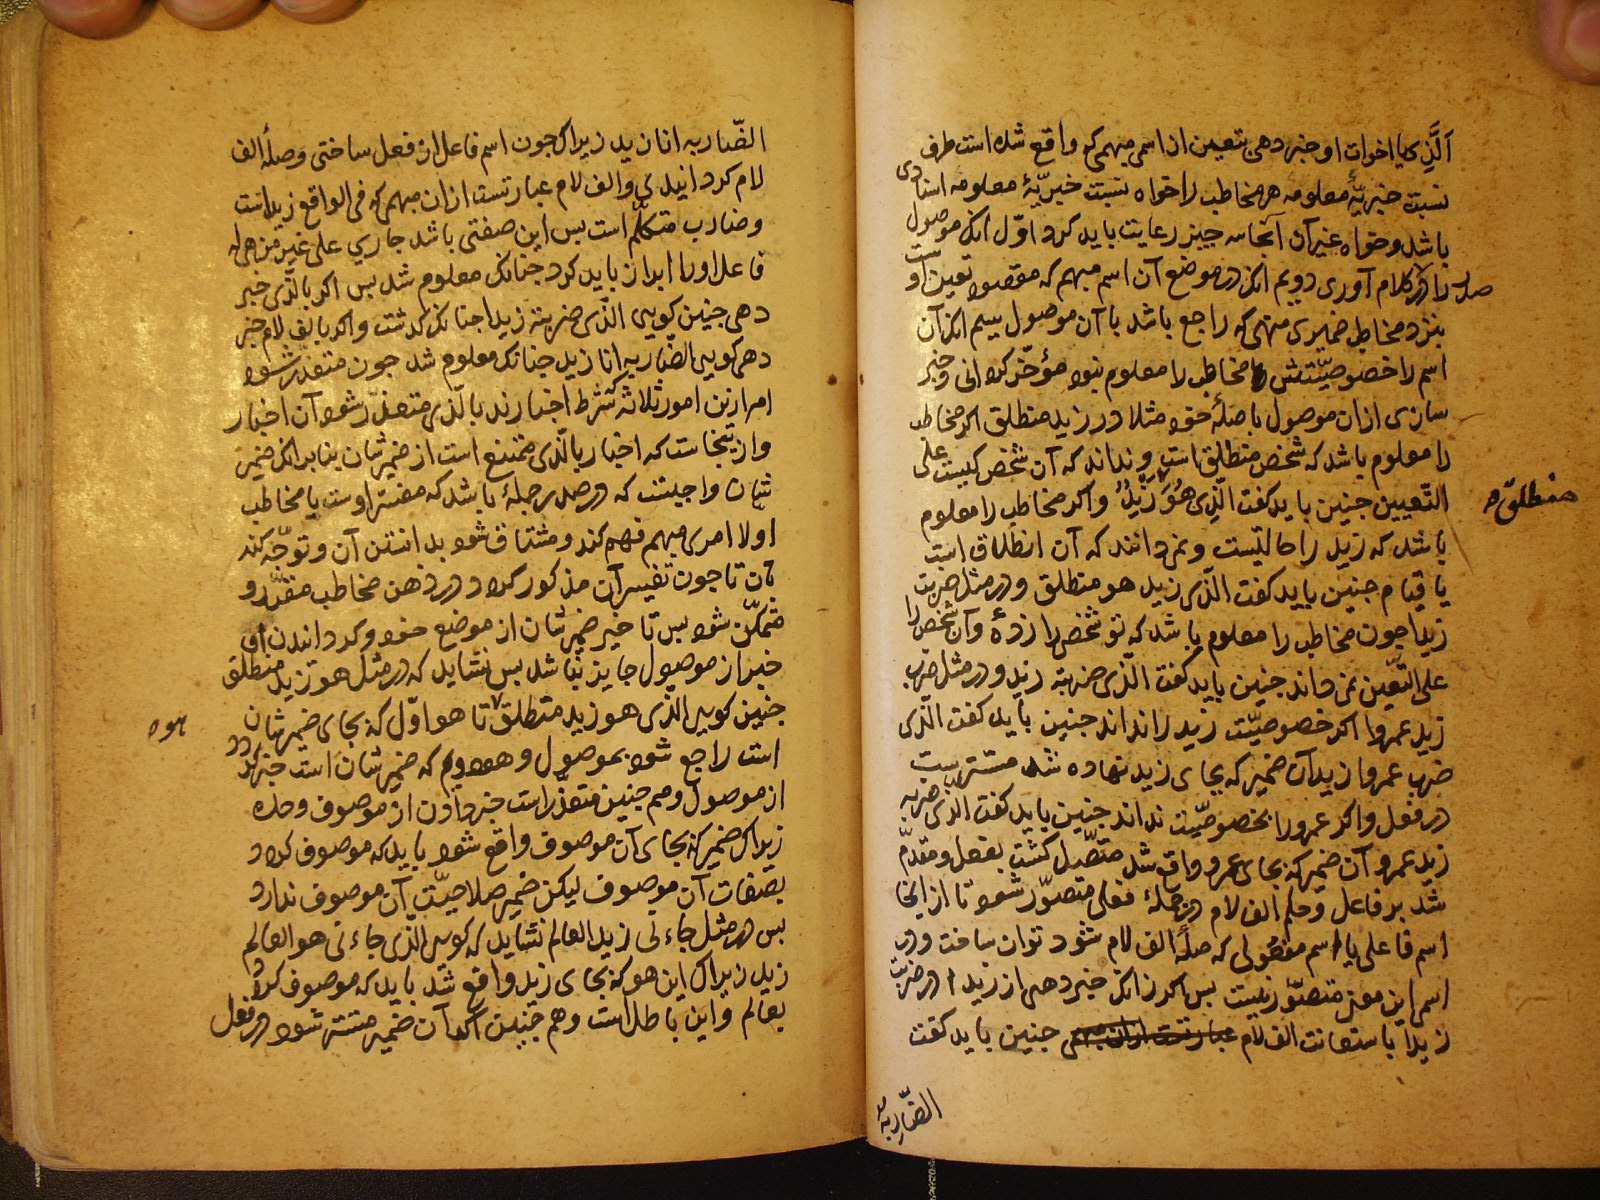 الَّذی یا اخوات او خبر دهی بتعین از اسمی مبهمی که واقع شده است طرف
نسبت خبریّهٔ معلومه مر مخاطب را خواه نسبت خبریّهٔ معلومه اسنادی
باشد و خواه غیر آن آنجا سه چیز رعایت باید کرد اوّل انکه موصول
را در صدر کلام آوری دویم انکه در موضع آن اسم مبهم که مقصود تعین اوست
بنزد مخاطب ضمیری منهی که راجع باشد با آن موصول سیم انکه آن
اسم را خصوصیّتش مخاطب را معلوم نبود مؤخّر کردانی و خبر
سازی ازان موصول با صلهٔ خود مثلا در زید منطلق اکر مخاطب
را معلوم باشد که شخص منطلق است و نداند که آن شخص کیست علی
التّعیین چنین باید کفت الّذی هُوَ منطلق زَیْدٌ و اکر مخاطب را معلوم
باشد که زید را حالتیست و نمی دانند که آن انطلاق است
یا قیام چنین باید کفت الّذی زید هو منطلق و در مثل ضربت
زیدا چون مخاطب را معلوم باشد که تو شخصی را زدهٔ و آن شخص را
علی التّعین نمی داند چنین باید کفت الّذی ضربته زید و در مثل ضرب
زید عمروا اکر خصوصیّت زید را نداند چنین باید کفت الّذی
ضرب عمروا زید آن ضمیر که بجای زید نهاده شد مستتر است
در فعل و اکر عمرو را بخصوصیّت نداند چنین باید کفت الذی ضربه
زید عمرو آن ضمیر که بجای عمرو واقع شد متّصل کشت بفعل و مقدّم
شد بر فاعل و حلم الف لام در جملهٔ فعلی متصوّر شود تا از انجا
اسم فاعلی یا اسم مفعُولی که صلهٔ الف لام شود توان ساخت و در
اسمی این معنی متصوّر نیست پس اکر زانکه خبر دهی از زید در ضربت
زیدا باستعانت الف لام چنین باید کفت
الضّاربه
الضّاربه انا زید زیراکه چون اسم فاعل از فعل ساختی و صلهٔ الف
لام کردانیدی و الف لام عبارتست ازان مبهم که فی الواقع زید است
و ضارب متکلّم است پس این صفتی باشد جاری علی غیر من هی له
فاعل اورا ابراز باید کرد چنانکه معلوم شد پس اکر بالّذی خبر
دهی چنین کویی الّذی ضربته زید چنانکه کذشت و اکر بالف لام خبر
دهی کویی الضاربه انا زید چنانکه معلوم شد چون متعذّر شود
امر ازین امور ثلاثه که شرط اخبارند بالّذی متعذّر شود آن اخبار
و ازینجاست که اخبار بالّذی ممتنع است از ضمیر شان بنابر انکه ضمیر
شان واجبست که در صدر جملهٔ باشد که مفسّر اوست یا مخاطب
اولا امری مبهم فهم کند و مشتاق شود بدانستن آن و توجّه کند
بآن تا چون تفسیر آن مذکور کردد در ذهن مخاطب مقرّر و
متمکّن شود پس تاخیر ضمیر شان از موضع خود و کردانیدن او
خبر از موصول جایز نباشد پس نشاید که در مثل هو زید منطلق
چنین کویی الّذی هو زید منطلق هو تا هو اوّل که بجای ضمیر شان
است راجع شود بموصول و هو دویم که ضمیر شان است خبر کردد
از موصول و هم چنین متعذر است خبر دادن از موصوف وحده
زیراکه ضمیر که بجای آن موصوف واقع شود باید که موصوف کردد
بصفات آن موصوف لیکن ضمیر صلاحیّت آن موصوف ندارد
پس در مثل جاءنی زید العالم نشاید که کویی الّذی جاءنی هو العالم
زید زیراکه این هو که بجای زید واقع شد باید که موصوف کردد
بعالم و این باطل است و هم چنین اکر آن ضمیر مستتر شود در فعل